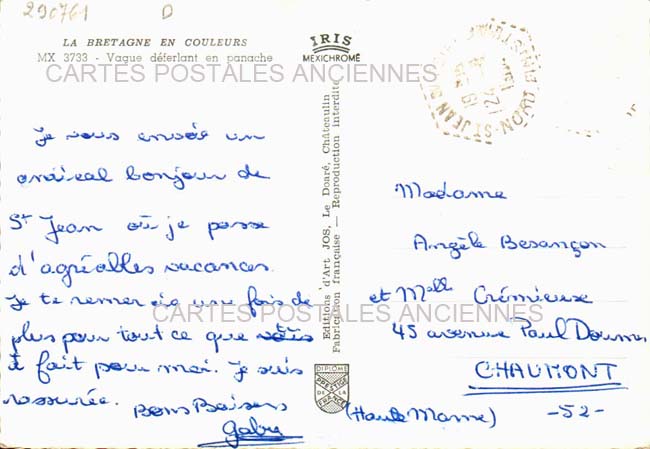 290761 D
LA BRETAGNE EN COULEURS
MX 3733 - Vague déferlant en panache
IRIS
MEXICHROME
CARTES POSTALES ANCIENNES
Je vous envoie un
amical bonjour de
St Jean où je passe
d'agréables vacances.
Je te remercie une fois de
plus pour tout ce que
a fait pour moi. Je suis
rassurée. Bons Baisers
Gaby
Editions d'Art JOS, Le Doaré, Châteaulin
Fabrication française — Reproduction interdite
DIPLOME
PRESTIGE
DE LA
FRANCE
Madame
Angèle Besançon
et Melle Crémieuse
CARTES POSTALES ANCIENNES
45 avenue Paul Doumer
CHAUMONT
(Haute Marne) -52-
ST-JEAN